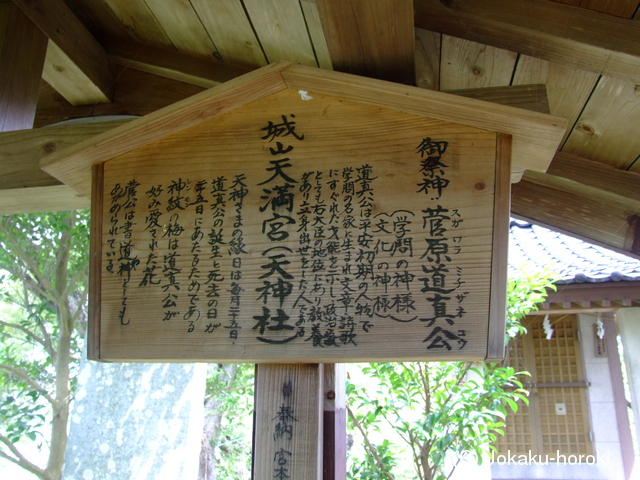 御祭神 菅原道真公
スガワラ ミチザネ コウ
(学問の神様)
(文化の神様)
道真公は平安初期の人物で
学問の名家に生まれ文章詩歌
にすぐれた才能を示し政治家
としても右大臣の地位にあり教養
があり立身出世をした人である
城山天満宮(天神社)
天神さまの縁日は毎月二十五日、
道真公の誕生と死去の日が
二十五日にあたるためである
神紋の梅は道真公が
シンモン
好み愛された花
菅公は書道の神としても
あがめられている。
奉納 宮本
Jokaku-horoki